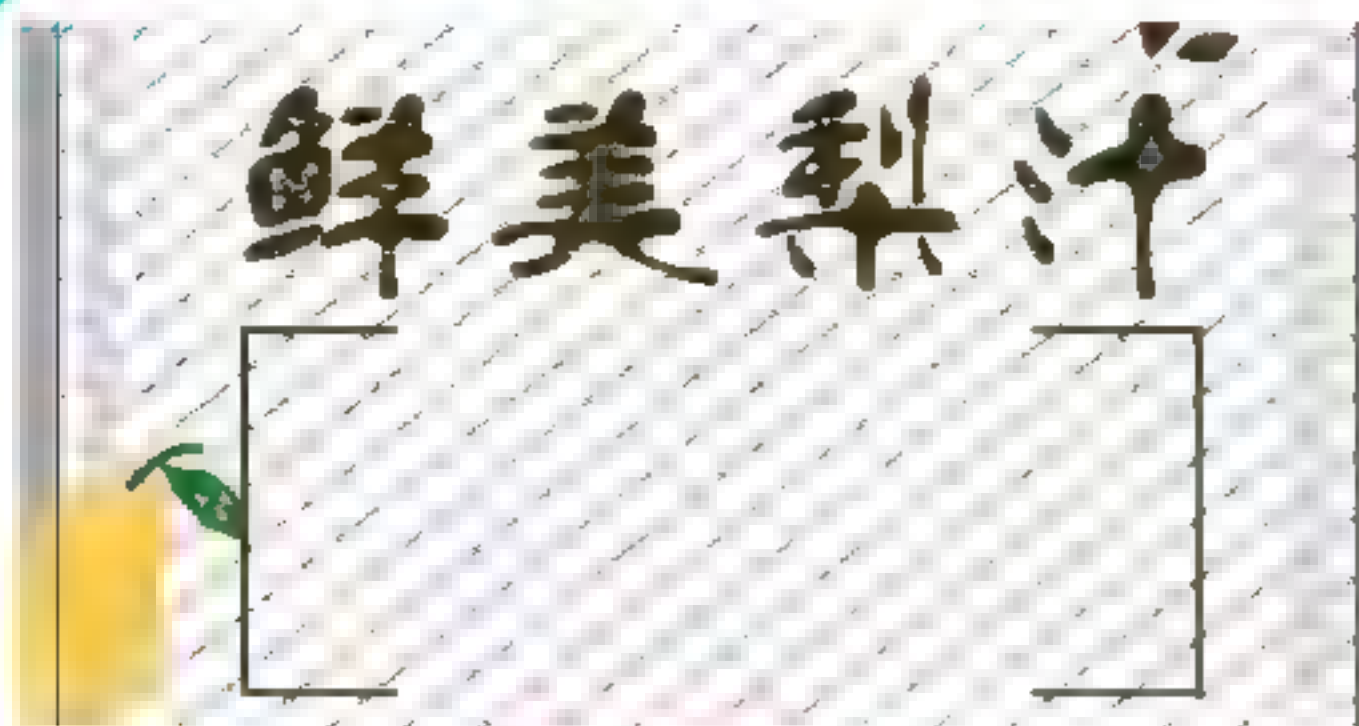 鲜美梨汁